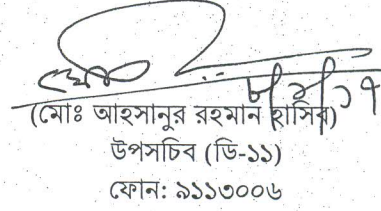 ৮/৯/১৭
(মোঃ আহসানুর রহমান হাসিব)
উপসচিব (ডি-১১)
ফোন: ৯১১৩০০৬